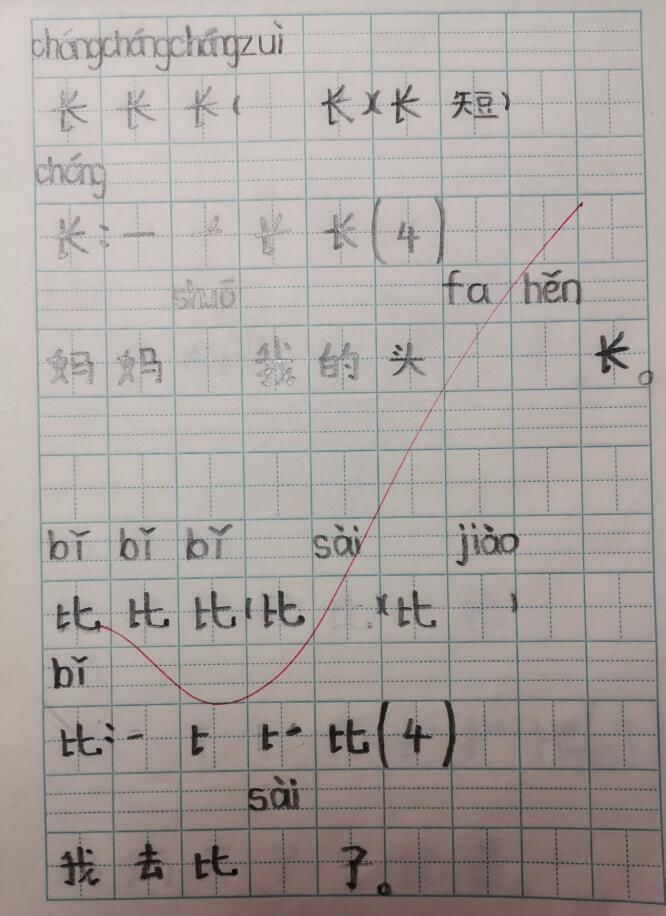 chángchángchángzuì
长 长 长( 长)(长 短)
cháng
长:一 长(4)
shuō fa hěn
妈妈 我的头 长。
bǐ bǐ bǐ sài jiào
比 比 比(比 )(比 )
bǐ
比:一 比(4)
sài
我去比 了。